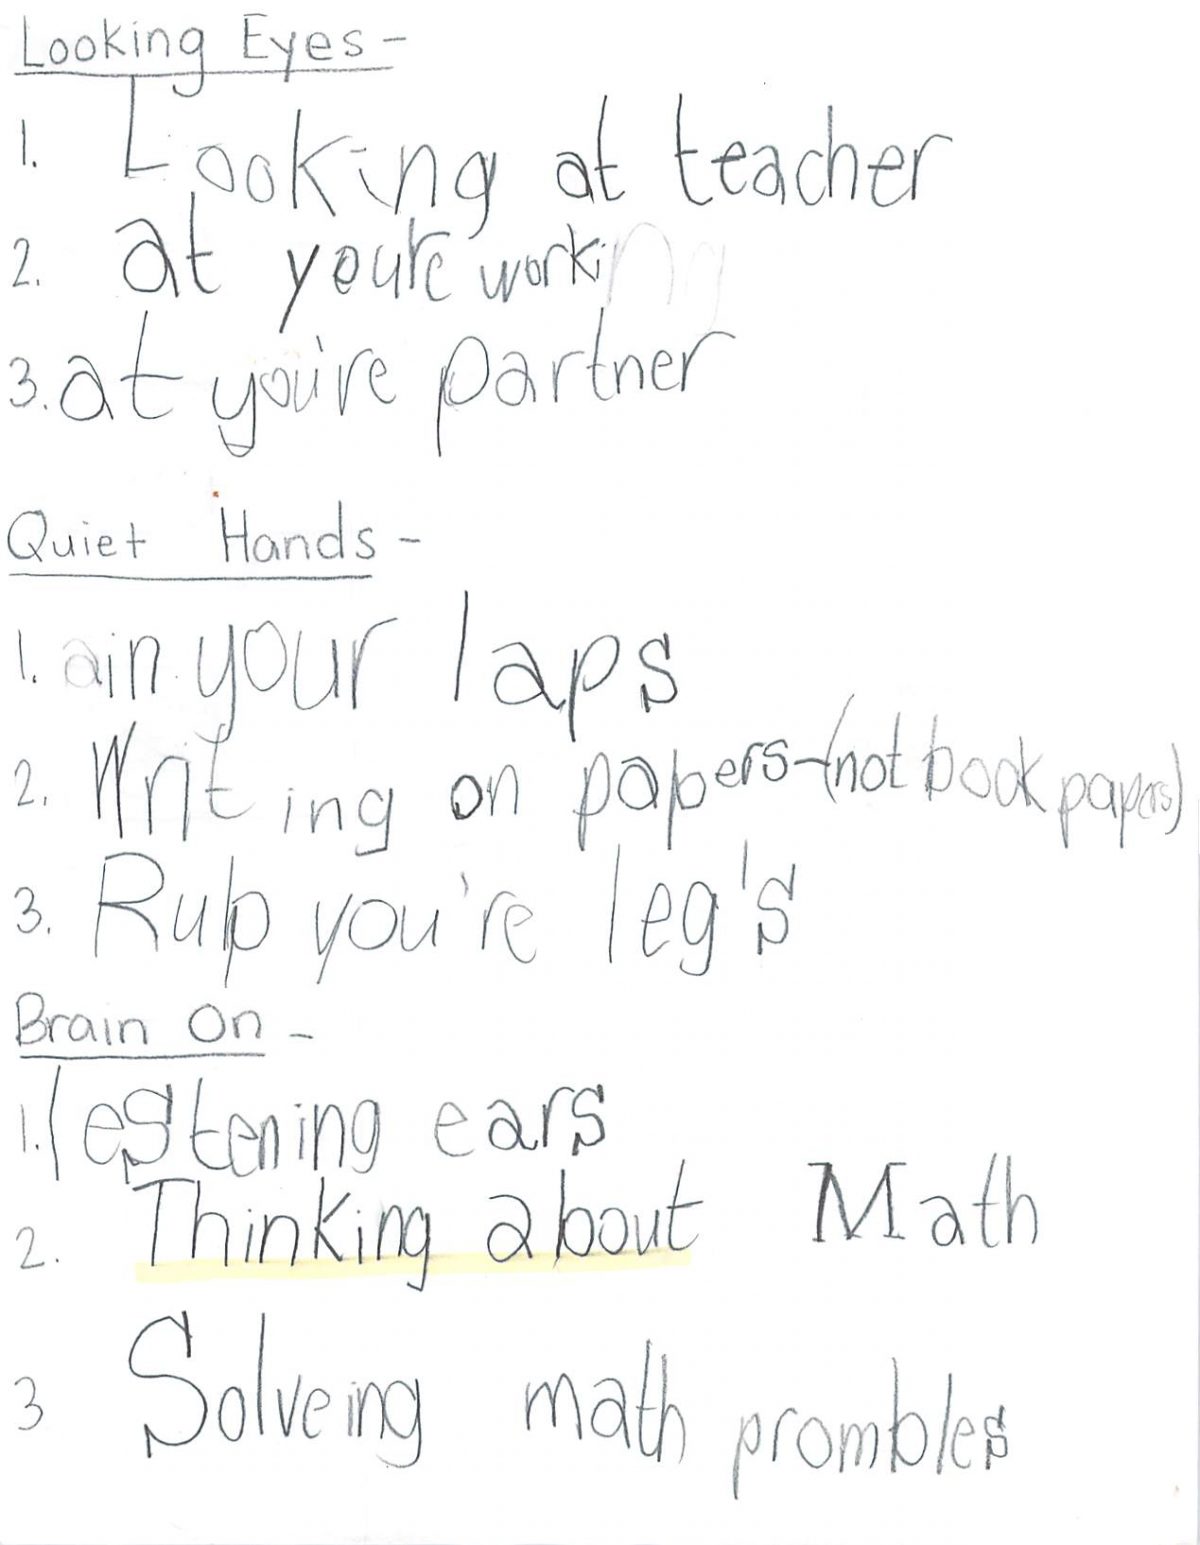 Looking Eyes -
1. Looking at teacher
2. at you're working
3. at you're partner
Quiet Hands -
1. ain your laps
2. Writing on papers-(not book papers)
3. Rub you're leg's
Brain On -
1. lestening ears
2. Thinking about Math
3 Solveing math prombles